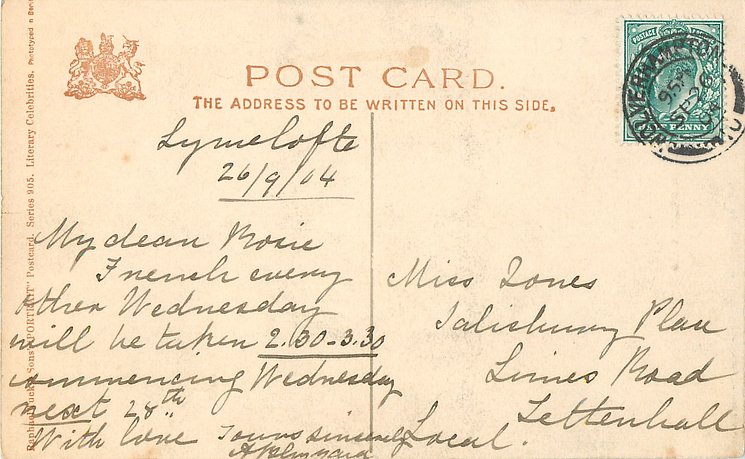 POST CARD.
THE ADDRESS TO BE WRITTEN ON THIS SIDE.
Raphael Tuck & Sons "PORTRAIT" Postcard. Series 905. Literary Celebrities.
WOLVERHAMPTON
9 5 PM
SP 26
04
POSTAGE
PENNY
26/9/04
My dear Rosie
French every
other Wednesday
will be taken 2.30-3.30
commencing Wednesday
next 28th
With love Yours sincerely
Miss Jones
Salisbury Place
Limes Road
Tettenhall
Local.